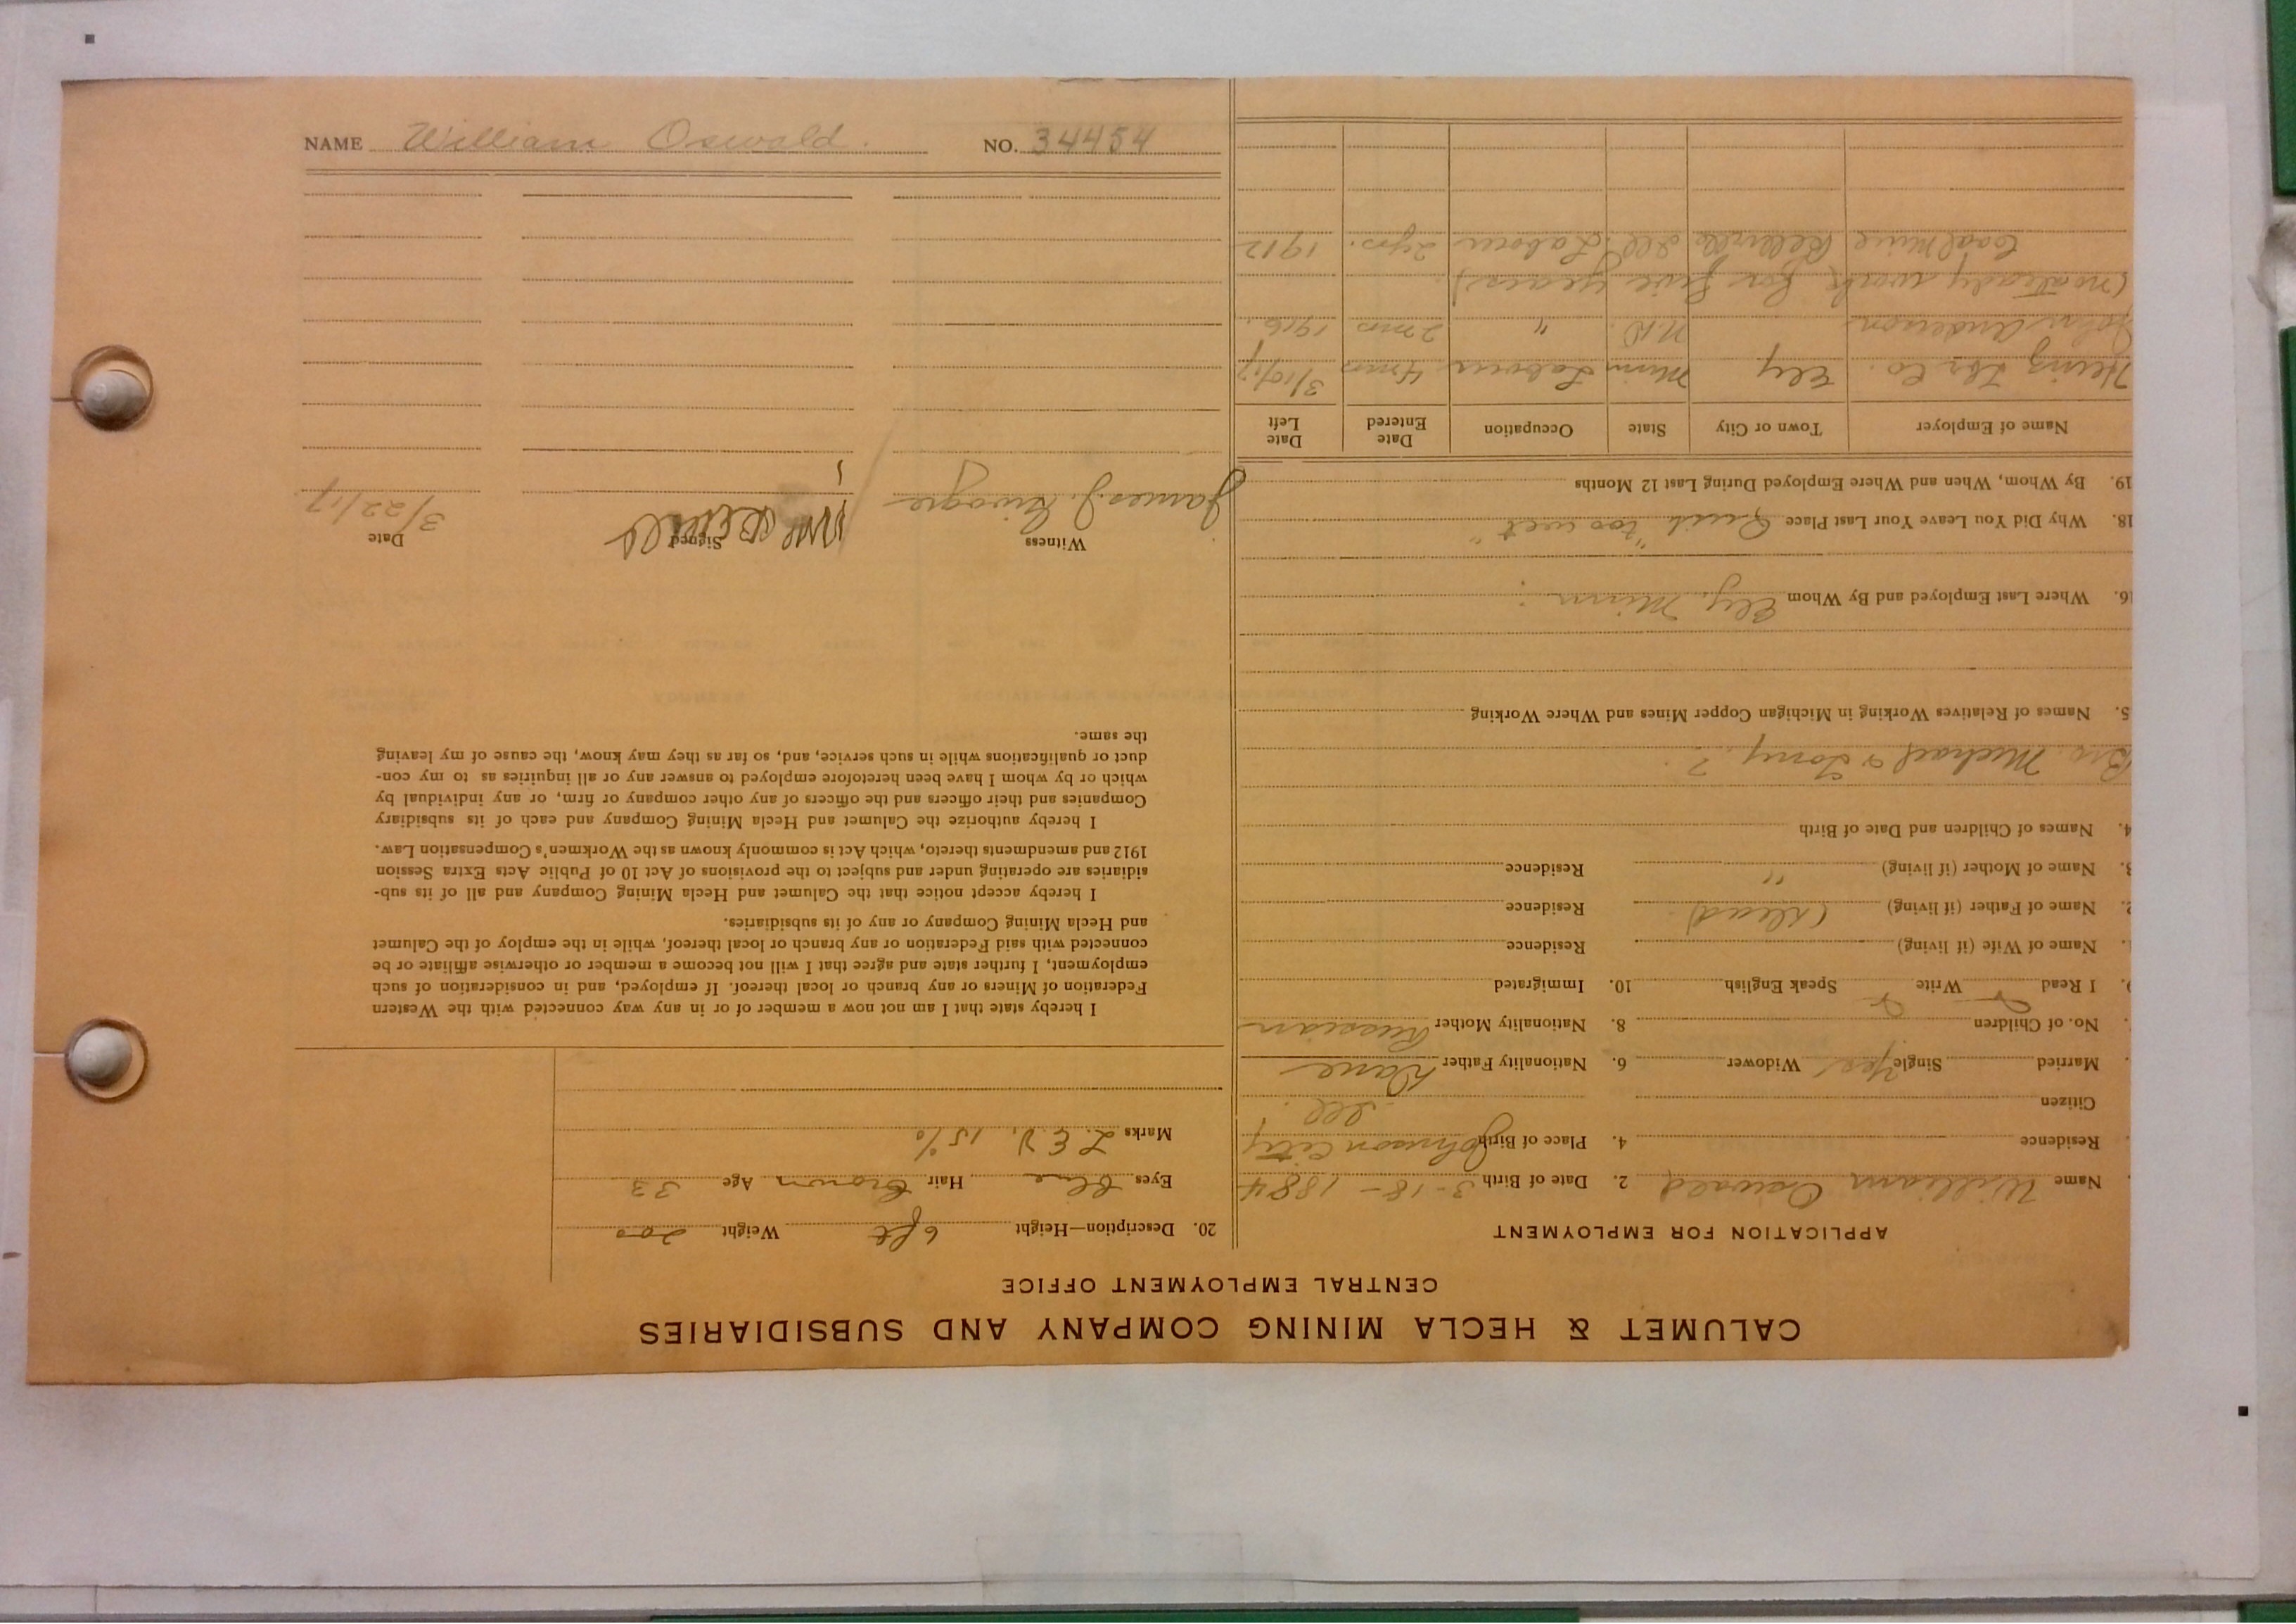 CALUMET & HECLA MINING COMPANY AND SUBSIDIARIES
CENTRAL EMPLOYMENT OFFICE
APPLICATION FOR EMPLOYMENT
Name William Oswald 2. Date of Birth 3-18-1884
Residence 4. Place of Birth Johnson City
Citizen Ill.
Married Single Yes Widower 6. Nationality Father Dane
No. of Children 8. Nationality Mother Russian
I Read Write Speak English 10. Immigrated
Name of Wife (if living) Residence
Name of Father (if living) (dead) Residence
Name of Mother (if living) " Residence
4. Names of Children and Date of Birth
Bro. Michael & Tony ?
5. Names of Relatives Working in Michigan Copper Mines and Where Working
16. Where Last Employed and By Whom Ely, Minn
18. Why Did You Leave Your Last Place Quit "too wet"
19. By Whom, When and Where Employed During Last 12 Months
Name of Employer Town or City State Occupation Date Entered Date Left
Co. Ely Minn Labour 4 mos 3/10/17
John Anderson N.D. " 2 mos 1916.
(no steady work for five years)
Coal Mine Belleville Ill. Labour 2 yrs. 1912
20. Description—Height 6 ft Weight 200
Eyes Blue Hair Brown Age 33
Marks L.E.V. 15%
I hereby state that I am not now a member of or in any way connected with the Western
Federation of Miners or any branch or local thereof. If employed, and in consideration of such
employment, I further state and agree that I will not become a member or otherwise affiliate or be
connected with said Federation or any branch or local thereof, while in the employ of the Calumet
and Hecla Mining Company or any of its subsidiaries.
I hereby accept notice that the Calumet and Hecla Mining Company and all of its sub-
sidiaries are operating under and subject to the provisions of Act 10 of Public Acts Extra Session
1912 and amendments thereto, which Act is commonly known as the Workmen's Compensation Law.
I hereby authorize the Calumet and Hecla Mining Company and each of its subsidiary
Companies and their officers and the officers of any other company or firm, or any individual by
which or by whom I have been heretofore employed to answer any or all inquiries as to my con-
duct or qualifications while in such service, and, so far as they may know, the cause of my leaving
the same.
Witness Signed Date
James J. 3/22/17
NAME William Oswald. NO. 34454